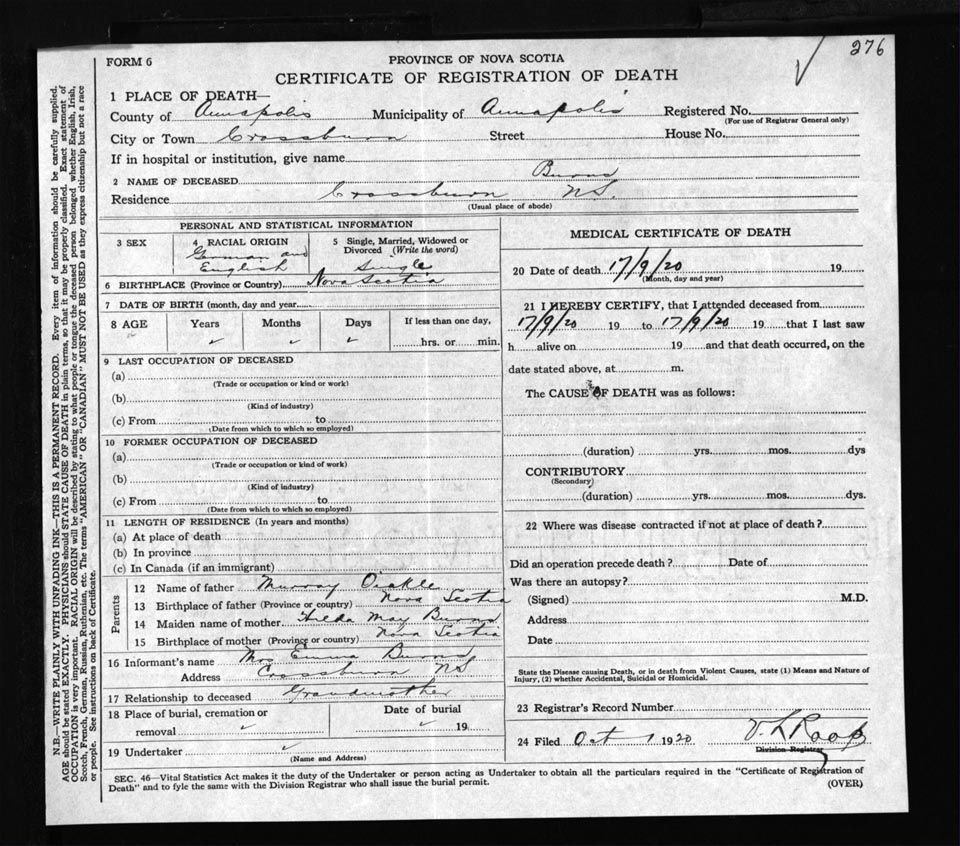 276
FORM 6
PROVINCE OF NOVA SCOTIA
CERTIFICATE OF REGISTRATION OF DEATH
1 PLACE OF DEATH—
County of Annapolis Municipality of Annapolis Registered No.
(For use of Registrar General only)
City or Town Crossburn Street House No.
If in hospital or institution, give name
2 NAME OF DECEASED Burns
Residence Crossburn N.S.
(Usual place of abode)
PERSONAL AND STATISTICAL INFORMATION
3 SEX 4 RACIAL ORIGIN 5 Single, Married, Widowed or
Divorced (Write the word)
German and
English Single
6 BIRTHPLACE (Province or Country) Nova Scotia
7 DATE OF BIRTH (month, day and year
8 AGE Years Months Days If less than one day,
hrs. or min.
9 LAST OCCUPATION OF DECEASED
(a)
(Trade or occupation or kind or work)
(b)
(Kind of industry)
(c) From to
(Date from which to which so employed)
10 FORMER OCCUPATION OF DECEASED
(a)
(Trade or occupation or kind of work)
(b)
(Kind of industry)
(c) From to
(Date from which to which so employed)
11 LENGTH OF RESIDENCE (In years and months)
(a) At place of death
(b) In province
(c) In Canada (if an immigrant)
Parents
12 Name of father Murray Oickle
13 Birthplace of father (Province or country) Nova Scotia
14 Maiden name of mother Hilda May Burns
15 Birthplace of mother (Province or country) Nova Scotia
16 Informant's name Mrs Emma Burns
Address Crossburn N S
17 Relationship to deceased Grandmother
18 Place of burial, cremation or Date of burial
removal 19
19 Undertaker
(Name and Address)
MEDICAL CERTIFICATE OF DEATH
20 Date of death 17/9/20 19
(Month, day and year)
21 I HEREBY CERTIFY, that I attended deceased from
17/9/20 19 to 17/9/20 19 that I last saw
h alive on 19 and that death occurred, on the
date stated above, at m.
The CAUSE OF DEATH was as follows:
(duration) yrs. mos. dys
CONTRIBUTORY
(Secondary)
(duration) yrs. mos. dys.
22 Where was disease contracted if not at place of death?
Did an operation precede death? Date of
Was there an autopsy?
(Signed) M.D.
Address
Date
State the Disease causing Death, or in death from Violent Causes, state (1) Means and Nature of
Injury, (2) whether Accidental, Suicidal or Homicidal.
23 Registrar's Record Number
24 Filed Oct 1 1920 V. L Roop
Division Registrar
SEC. 46—Vital Statistics Act makes it the duty of the Undertaker or person acting as Undertaker to obtain all the particulars required in the "Certificate of Registration of
Death" and to fyle the same with the Division Registrar who shall issue the burial permit.
(OVER)
N.B.—WRITE PLAINLY WITH UNFADING INK—THIS IS A PERMANENT RECORD. Every item of information should be carefully supplied.
AGE should be stated EXACTLY. PHYSICIANS should STATE CAUSE OF DEATH in plain terms, so that it may be properly classified. Exact statement of
OCCUPATION is very important. RACIAL ORIGIN will be described by stating to what people or tongue the deceased person belonged whether English, Irish,
Scotch, French, German, Russian, Ruthenian, etc. The terms "AMERICAN" OR "CANADIAN" MUST NOT BE USED as they express citizenship but not a race
or people. See instructions on back of Certificate.